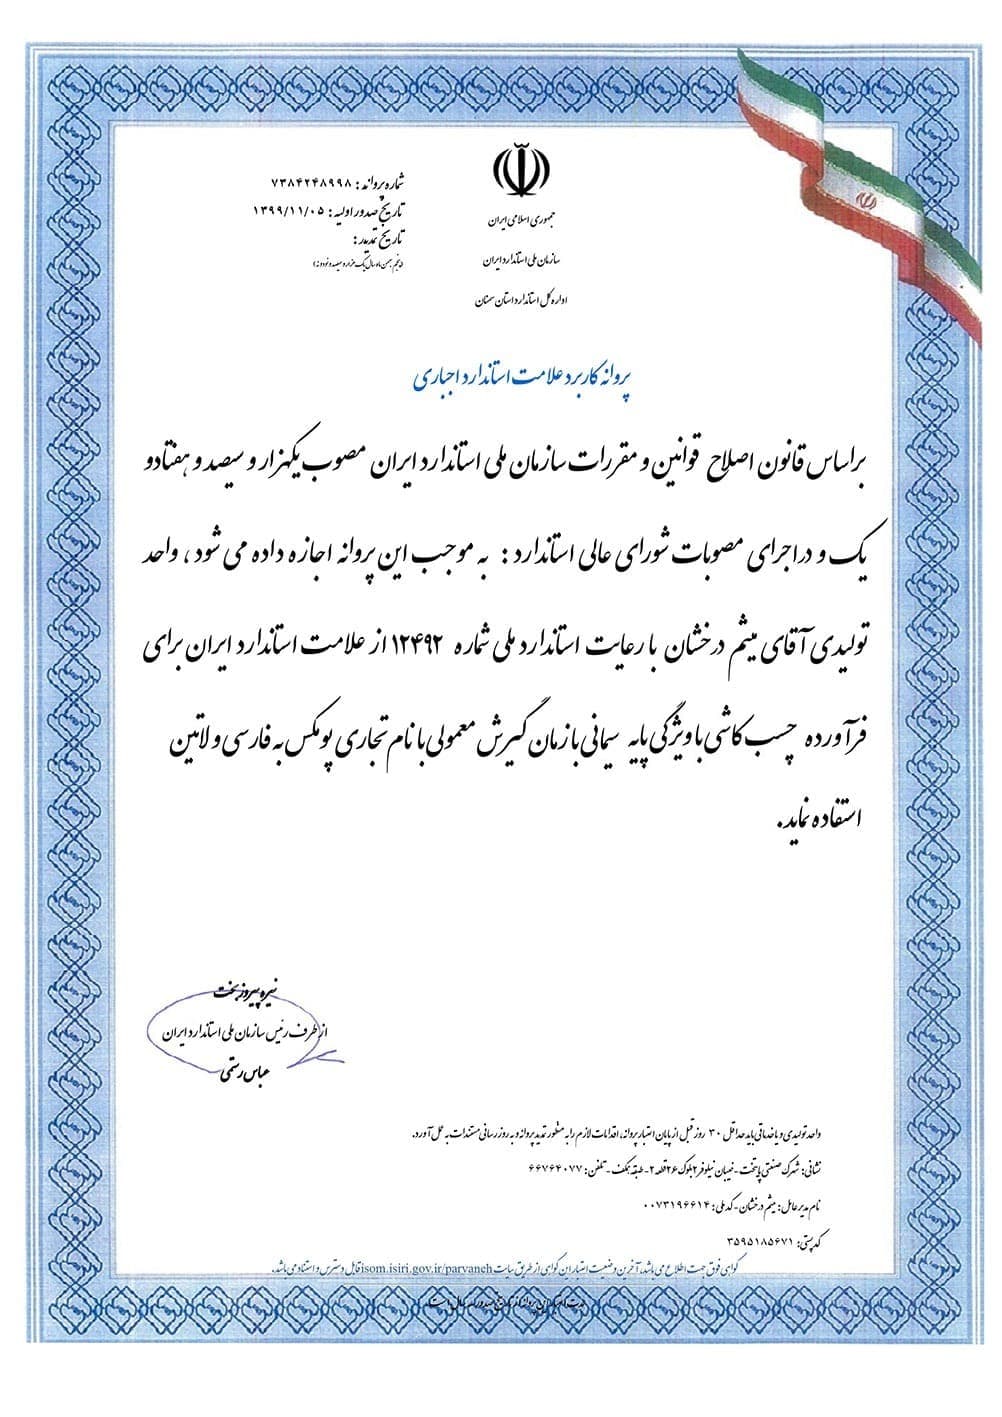 جمهوری اسلامی ایران
سازمان ملی استاندارد ایران
اداره کل استاندارد استان سمنان
شماره پروانه : ۷۳۸۴۲۴۸۹۹۸
تاریخ صدور اولیه : ۱۳۹۹/۱۱/۰۵
تاریخ تمدید :
(پنجم بهمن ماه سال یک هزار و سیصد و نود و نه)
پروانه کاربرد علامت استاندارد اجباری
براساس قانون اصلاح قوانین و مقررات سازمان ملی استاندارد ایران مصوب یکهزار و سیصد و هفتاد و
یک و در اجرای مصوبات شورای عالی استاندارد : به موجب این پروانه اجازه داده می شود ، واحد
تولیدی آقای میثم درخشان با رعایت استاندارد ملی شماره ۱۲۴۹۲ از علامت استاندارد ایران برای
فرآورده چسب کاشی با ویژگی پایه سیمانی با زمان گیرش معمولی با نام تجاری پومکس به فارسی و لاتین
استفاده نماید.
نیره پیروزبخت
از طرف رئیس سازمان ملی استاندارد ایران
عباس رستمی
واحد تولیدی و یا خدماتی باید حداقل ۳۰ روز قبل از پایان اعتبار پروانه، اقدامات لازم را به منظور تمدید پروانه و به روز رسانی مستندات به عمل آورد.
نشانی: شهرک صنعتی پایتخت - خیابان نیلوفر ۲ بلوک ۲۶ قطعه ۲ - طبقه همکف - تلفن: ۶۶۷۶۴۰۷۷
نام مدیر عامل : میثم درخشان - کد ملی : ۰۰۷۳۱۹۶۶۱۴
کد پستی: ۳۵۹۵۱۸۵۶۷۱
گواهی فوق جهت اطلاع می باشد، آخرین وضعیت اعتبار این گواهی از طریق سایت isom.isiri.gov.ir/parvaneh قابل دسترس و استناد می باشد.
مدت اعتبار این پروانه از تاریخ صدور سال است